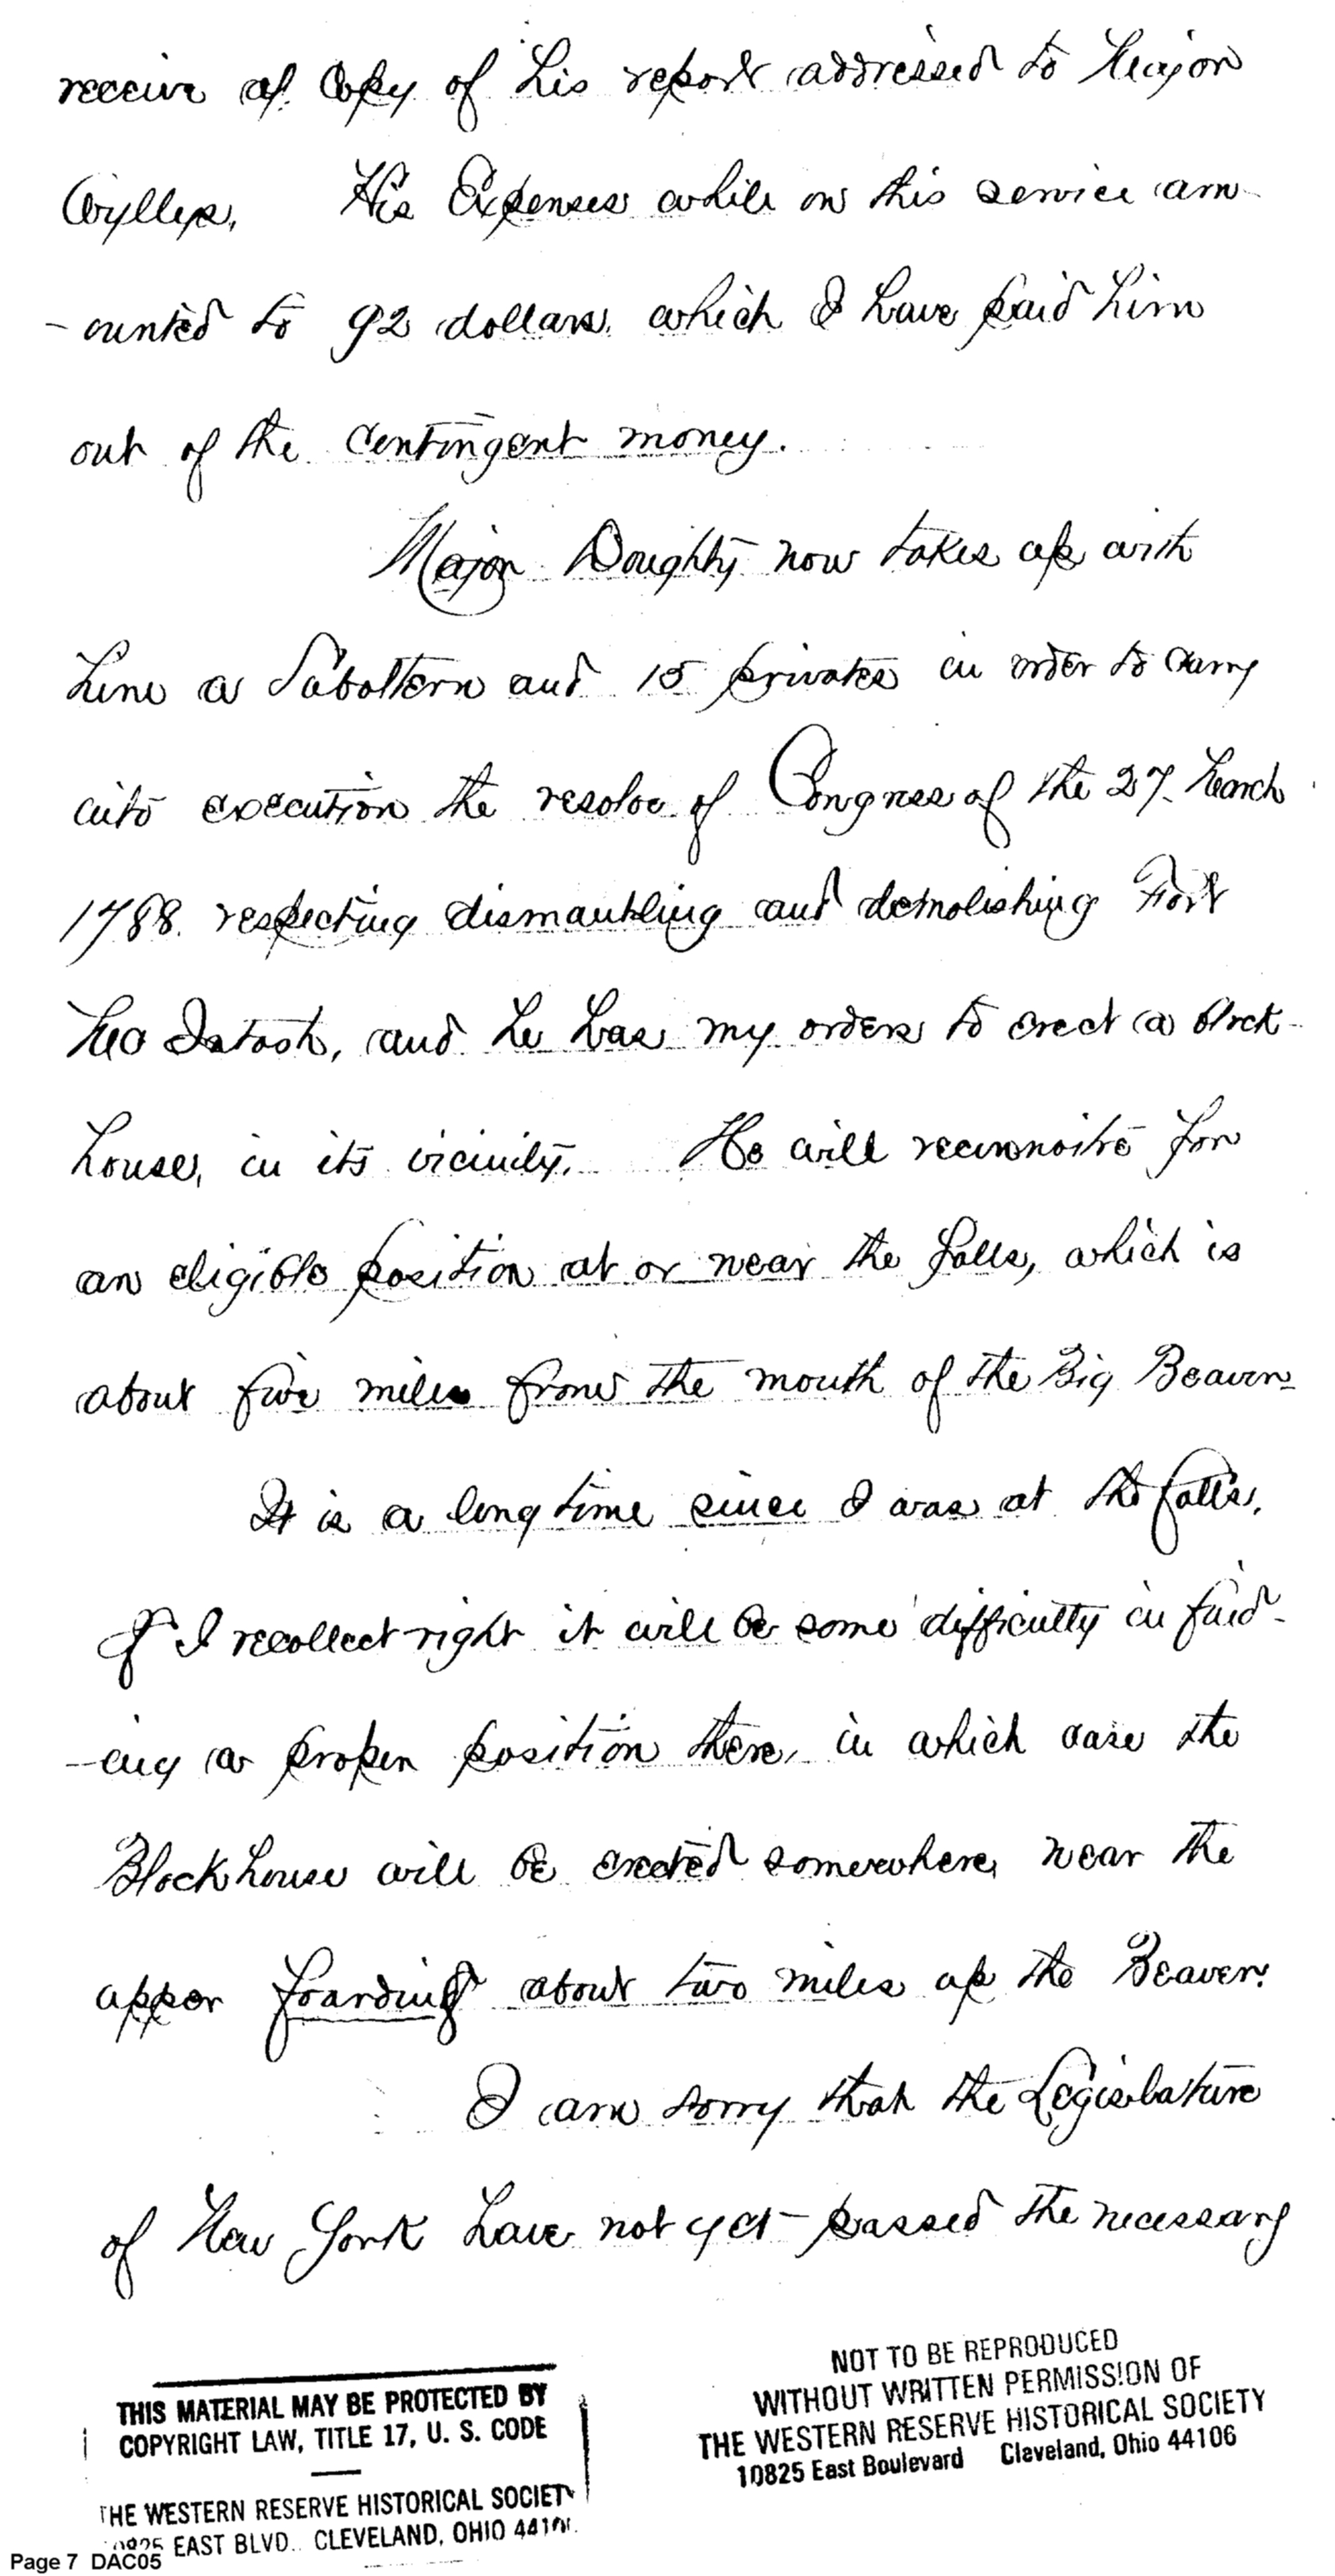 receive a Copy of his report addressed to Major
Wyllys. His Expenses while on this service am-
-ounted to 92 dollars, which I have paid him
out of the Contingent money.
Major Doughty now takes up with
him a Saboltern and 15 privates in order to carry
into execution the resolve of Congress of the 27. March
1788. respecting dismantling and demolishing Fort
McIntosh, and he has my orders to erect a block-
house, in its vicinity. He will reconnoitre for
an eligible position at or near the falls, which is
about five miles from the mouth of the Big Beaver-
It is a long time since I was at the falls.
If I recollect right it will be some difficulty in find-
-ing a proper position there, in which case the
Blockhouse will be erected somewhere near the
upper foarding about two miles up the Beaver.
I am sorry that the Legislature
of New York have not yet passed the necessary
THIS MATERIAL MAY BE PROTECTED BY
COPYRIGHT LAW, TITLE 17, U. S. CODE
THE WESTERN RESERVE HISTORICAL SOCIETY
10825 EAST BLVD., CLEVELAND, OHIO 44106
NOT TO BE REPRODUCED
WITHOUT WRITTEN PERMISSION OF
THE WESTERN RESERVE HISTORICAL SOCIETY
10825 East Boulevard Cleveland, Ohio 44106
Page 7 DAC05